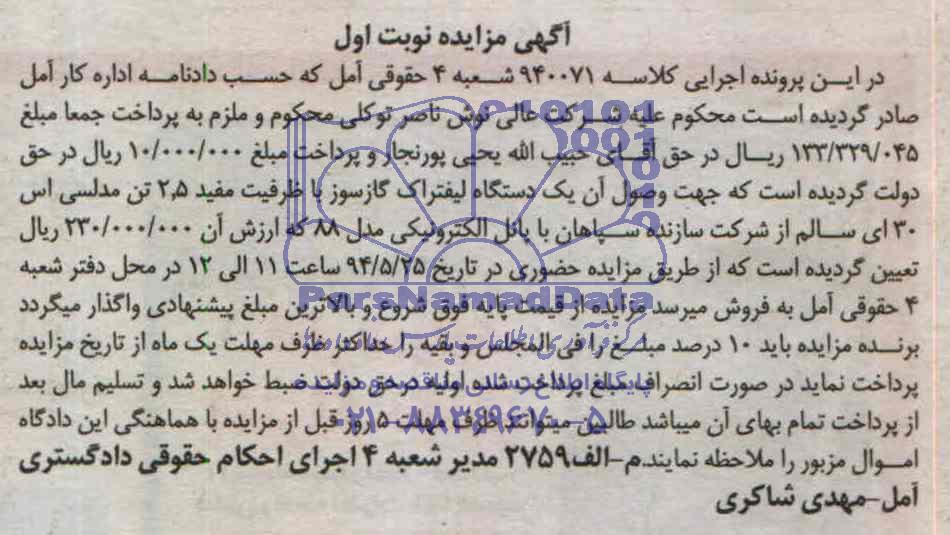 آگهی مزایده نوبت اول
در ایـن پرونده اجرایی کلاسه ۹۴۰۰۷۱ شـعبه ۴ حقوقی آمل که حسـب دادنامـه اداره کار آمل
صادر گردیده اسـت محکوم علیه شـرکت عالی نوش ناصر توکلی محکوم و ملزم به پرداخت جمعا مبلغ
۱۳۳/۳۲۹/۰۴۵ ریـال در حق آقـای حبیب الله یحیی پورنجار و پرداخت مبلغ ۱۰/۰۰۰/۰۰۰ ریال در حق
دولت گردیده است که جهت وصول آن یک دستگاه لیفتراک گازسوز با ظرفیت مفید ۲٫۵ تن مدلسی اس
۳۰ ای سـالم از شرکت سازنده سـپاهان با پانل الکترونیکی مدل ۸۸ که ارزش آن ۲۳۰/۰۰۰/۰۰۰ ریال
تعیین گردیده است که از طریق مزایده حضوری در تاریخ ۹۴/۵/۲۵ ساعت ۱۱ الی ۱۲ در محل دفتر شعبه
۴ حقوقی آمل به فروش میرسد مزایده از قیمت پایه فوق شروع و بالاترین مبلغ پیشنهادی واگذار میگردد
برنـده مزایده باید ۱۰ درصد مبلـغ را فی المجلس و بقیه را حداکثر ظرف مهلت یک ماه از تاریخ مزایده
پرداخت نماید در صورت انصراف مبلغ پرداخت شده اولیه درحق دولت ضبط خواهد شد و تسلیم مال بعد
از پرداخت تمام بهای آن میباشد طالبین میتوانند ظرف مهلت ۵ روز قبل از مزایده با هماهنگی این دادگاه
امـوال مزبور را ملاحظه نمایند.م-الف۲۷۵۹ مدیر شعبه ۴ اجرای احکام حقوقی دادگستری
آمل-مهدی شاکری
ParsNamadData
۰۲۱-۸۸۳۴۹۶۷۰-۵